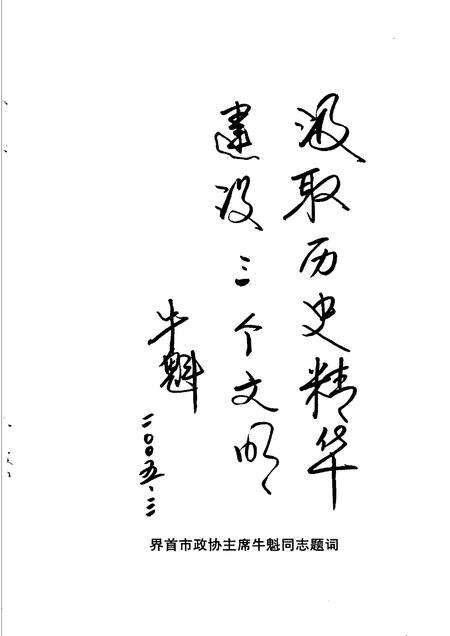 汲取历史精华
建设三个文明
牛魁
二〇〇五、三
界首市政协主席牛魁同志题词